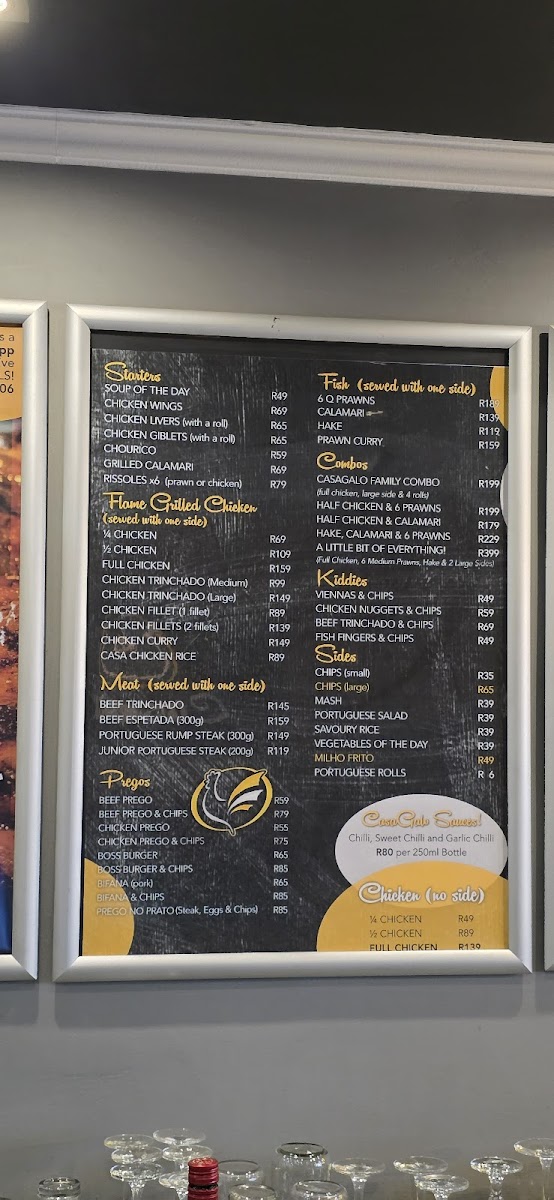 s a
pp
ve
LS!
06
Starters
SOUP OF THE DAY R49
CHICKEN WINGS R69
CHICKEN LIVERS (with a roll) R65
CHICKEN GIBLETS (with a roll) R65
CHOURICO R59
GRILLED CALAMARI R69
RISSOLES x6 (prawn or chicken) R79
Flame Grilled Chicken
(served with one side)
¼ CHICKEN R69
½ CHICKEN R109
FULL CHICKEN R159
CHICKEN TRINCHADO (Medium) R99
CHICKEN TRINCHADO (Large) R149
CHICKEN FILLET (1 fillet) R89
CHICKEN FILLETS (2 fillets) R139
CHICKEN CURRY R149
CASA CHICKEN RICE R89
Meat (served with one side)
BEEF TRINCHADO R145
BEEF ESPETADA (300g) R159
PORTUGUESE RUMP STEAK (300g) R149
JUNIOR PORTUGUESE STEAK (200g) R119
Pregos
BEEF PREGO R59
BEEF PREGO & CHIPS R79
CHICKEN PREGO R55
CHICKEN PREGO & CHIPS R75
BOSS BURGER R65
BOSS BURGER & CHIPS R85
BIFANA (pork) R65
BIFANA & CHIPS R85
PREGO NO PRATO (Steak, Eggs & Chips) R85
Fish (served with one side)
6 Q PRAWNS R189
CALAMARI R139
HAKE R119
PRAWN CURRY R159
Combos
CASAGALO FAMILY COMBO R199
(full chicken, large side & 4 rolls)
HALF CHICKEN & 6 PRAWNS R199
HALF CHICKEN & CALAMARI R179
HAKE, CALAMARI & 6 PRAWNS R229
A LITTLE BIT OF EVERYTHING! R399
(Full Chicken, 6 Medium Prawns, Hake & 2 Large Sides)
Kiddies
VIENNAS & CHIPS R49
CHICKEN NUGGETS & CHIPS R59
BEEF TRINCHADO & CHIPS R69
FISH FINGERS & CHIPS R49
Sides
CHIPS (small) R35
CHIPS (large) R65
MASH R39
PORTUGUESE SALAD R39
SAVOURY RICE R39
VEGETABLES OF THE DAY R39
MILHO FRITO R49
PORTUGUESE ROLLS R 6
CasaGalo Sauces!
Chilli, Sweet Chilli and Garlic Chilli
R80 per 250ml Bottle
Chicken (no side)
¼ CHICKEN R49
½ CHICKEN R89
FULL CHICKEN R139